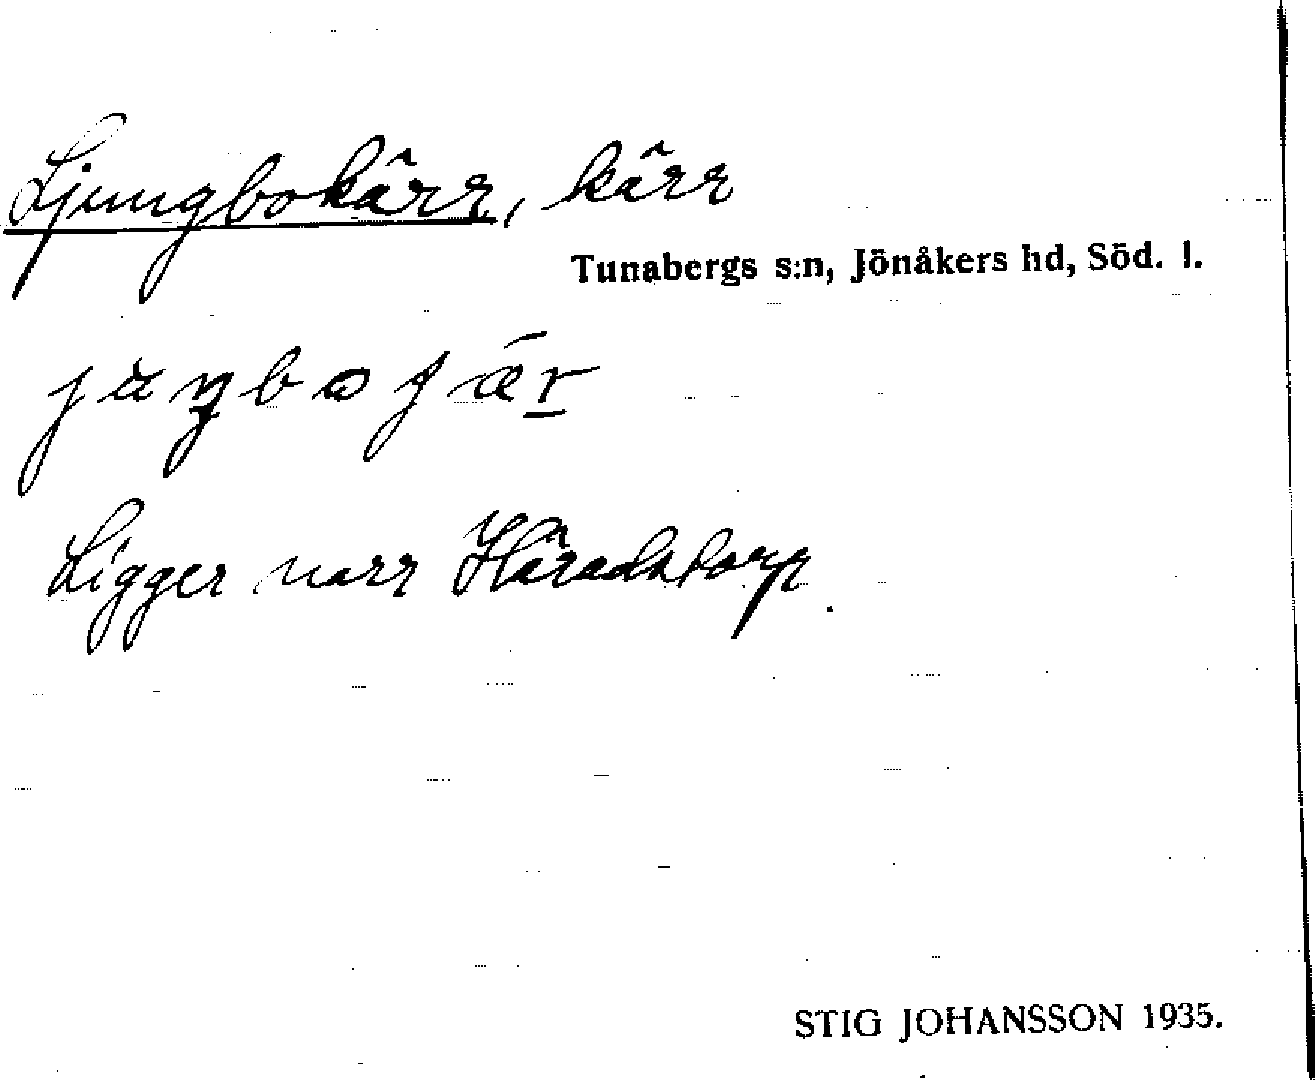 Ljungbokärr, kärr
Tunabergs s:n, Jönåkers hd, Söd. l.
Ligger norr Häradstorp.
STIG JOHANSSON 1935.